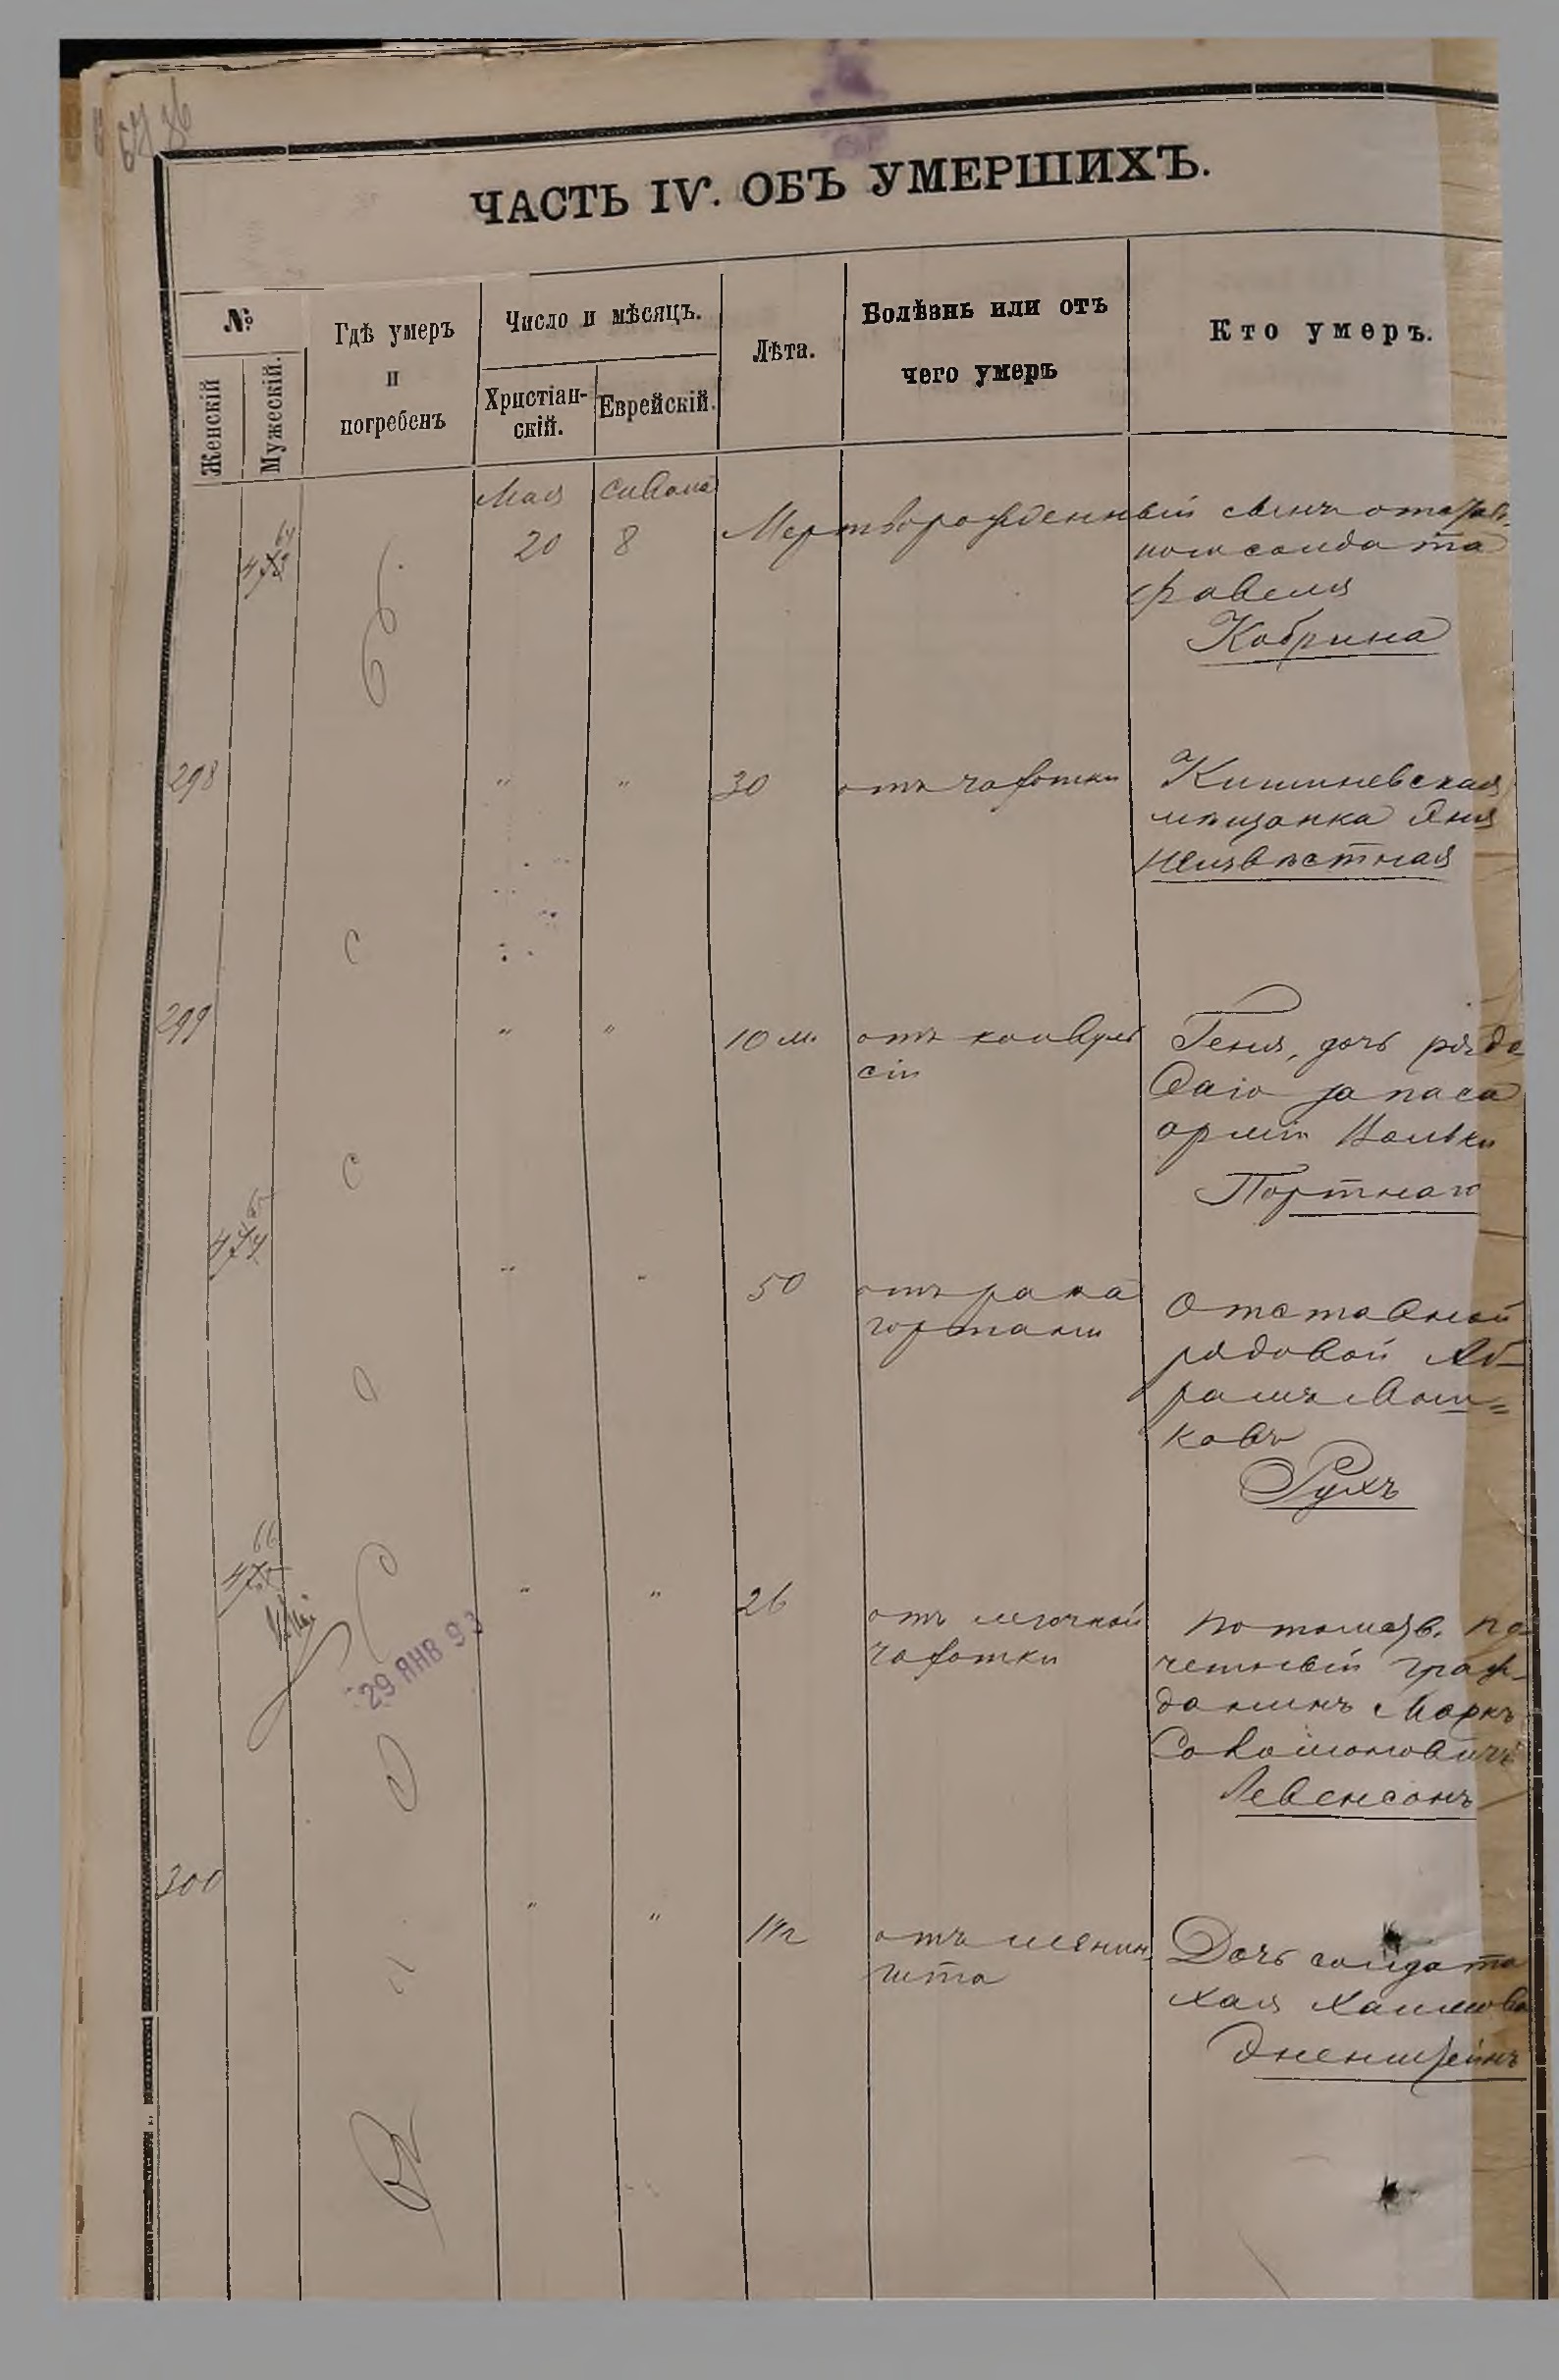 ЧАСТЬ IV. ОБЪ УМЕРШИХЪ.
№
Женскій
Мужескій.
Гдѣ умеръ
и
погребенъ
Число и мѣсяцъ.
Христіан-
скій.
Еврейскій.
Лѣта.
Болѣзнь или отъ
чего умеръ
Кто умеръ.
Мая Сивана
64
20 8 Мерворожденный сынъ отстав-
наго солдата
Фавеля
Кобрина
298 " " 30 отъ чахотки Кишиневская
мѣщанка Аня
Неизвѣстная
С
299 " " 10 м. отъ конвуль
сіи
Геня, дочь рядо
ваго запаса
арміи Вольки
Портнаго
С
65
" " 50 отъ рака
гортани
Отставной
рядовой Аб-
рамъ
ковъ
Рухъ
66
" " 26 отъ легочной
чахотки
Потомств. по-
четный граж-
данинъ Маркъ
Соломоновичъ
Левенсонъ
29 ЯНВ 93
300 " " отъ менин-
гита
Дочь солдата
Хая Хаимова